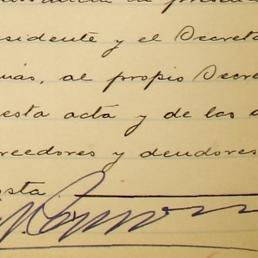 sidente y el Secreta
más, al propio Secre
esta acta y de las
reedores y deudores
osta